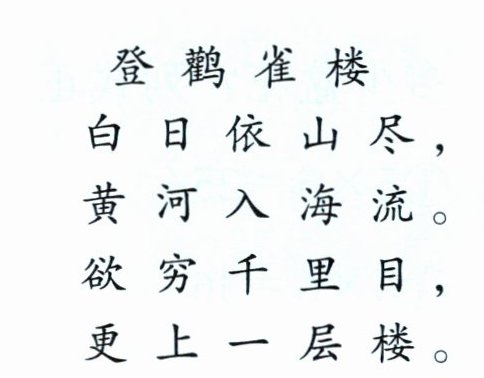 登鹳雀楼
白日依山尽，
黄河入海流。
欲穷千里目，
更上一层楼。